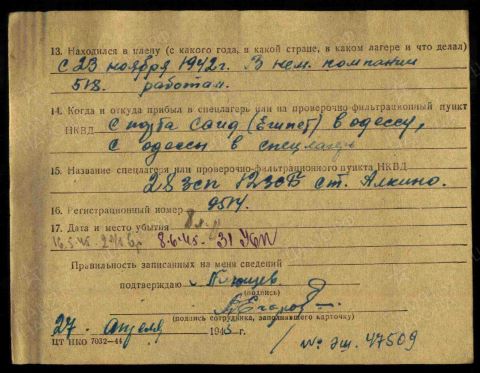 13. Находился в плену (с какого года, в какой стране, в каком лагере и что делал)
С 23 ноября 1942 г. В нем. компании
518 работал.
14. Когда и откуда прибыл в спецлагерь или на проверочно-фильтрационный пункт
НКВД С порта Саид (Египет) в одессу,
с одессы в спецлагерь
15. Название спецлагеря или проверочно-фильтрационного пункта НКВД
28 зсп 12 зсб ст. Алкино.
16. Регистрационный номер 9514.
17. Дата и место убытия
8-6-45-
Правильность записанных на меня сведений
подтверждаю
(подпись)
(подпись сотрудника, заполняющего карточку)
27 апреля 1945 г.
ЦТ НКО 7032—44
№ эш. 47509